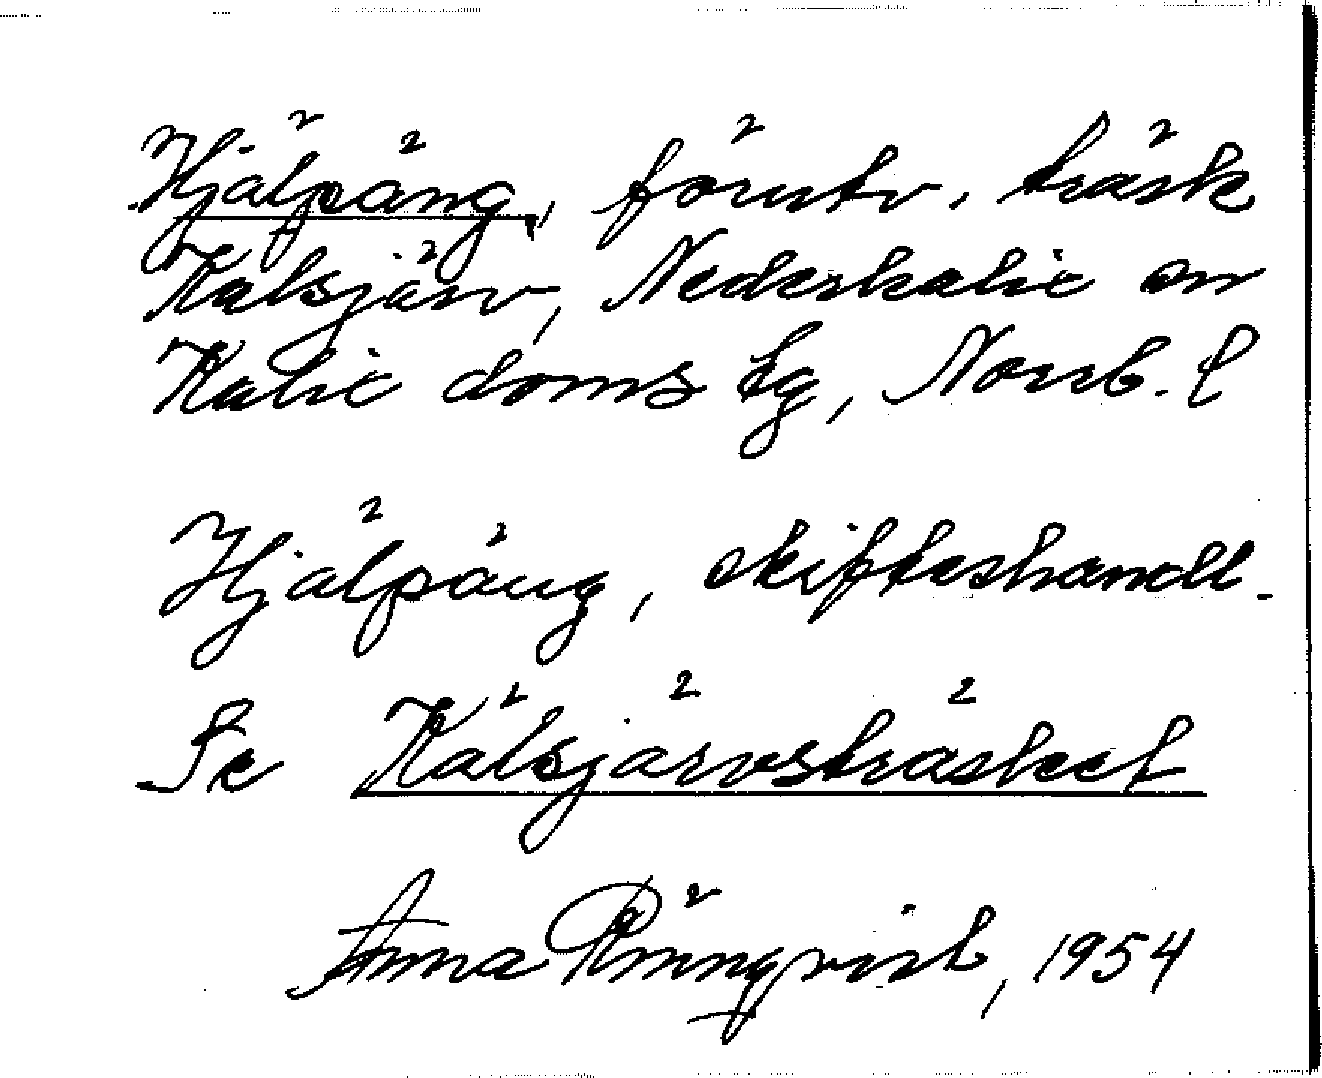 Hjälpäng, försv. träsk
Kälsjärv, Nederkalix sn
Kalix doms lg, Norrb. l
Hjälpäng, skifteshandl.
Se Kälsjärvsträsket
Anna Rönnqvist, 1954